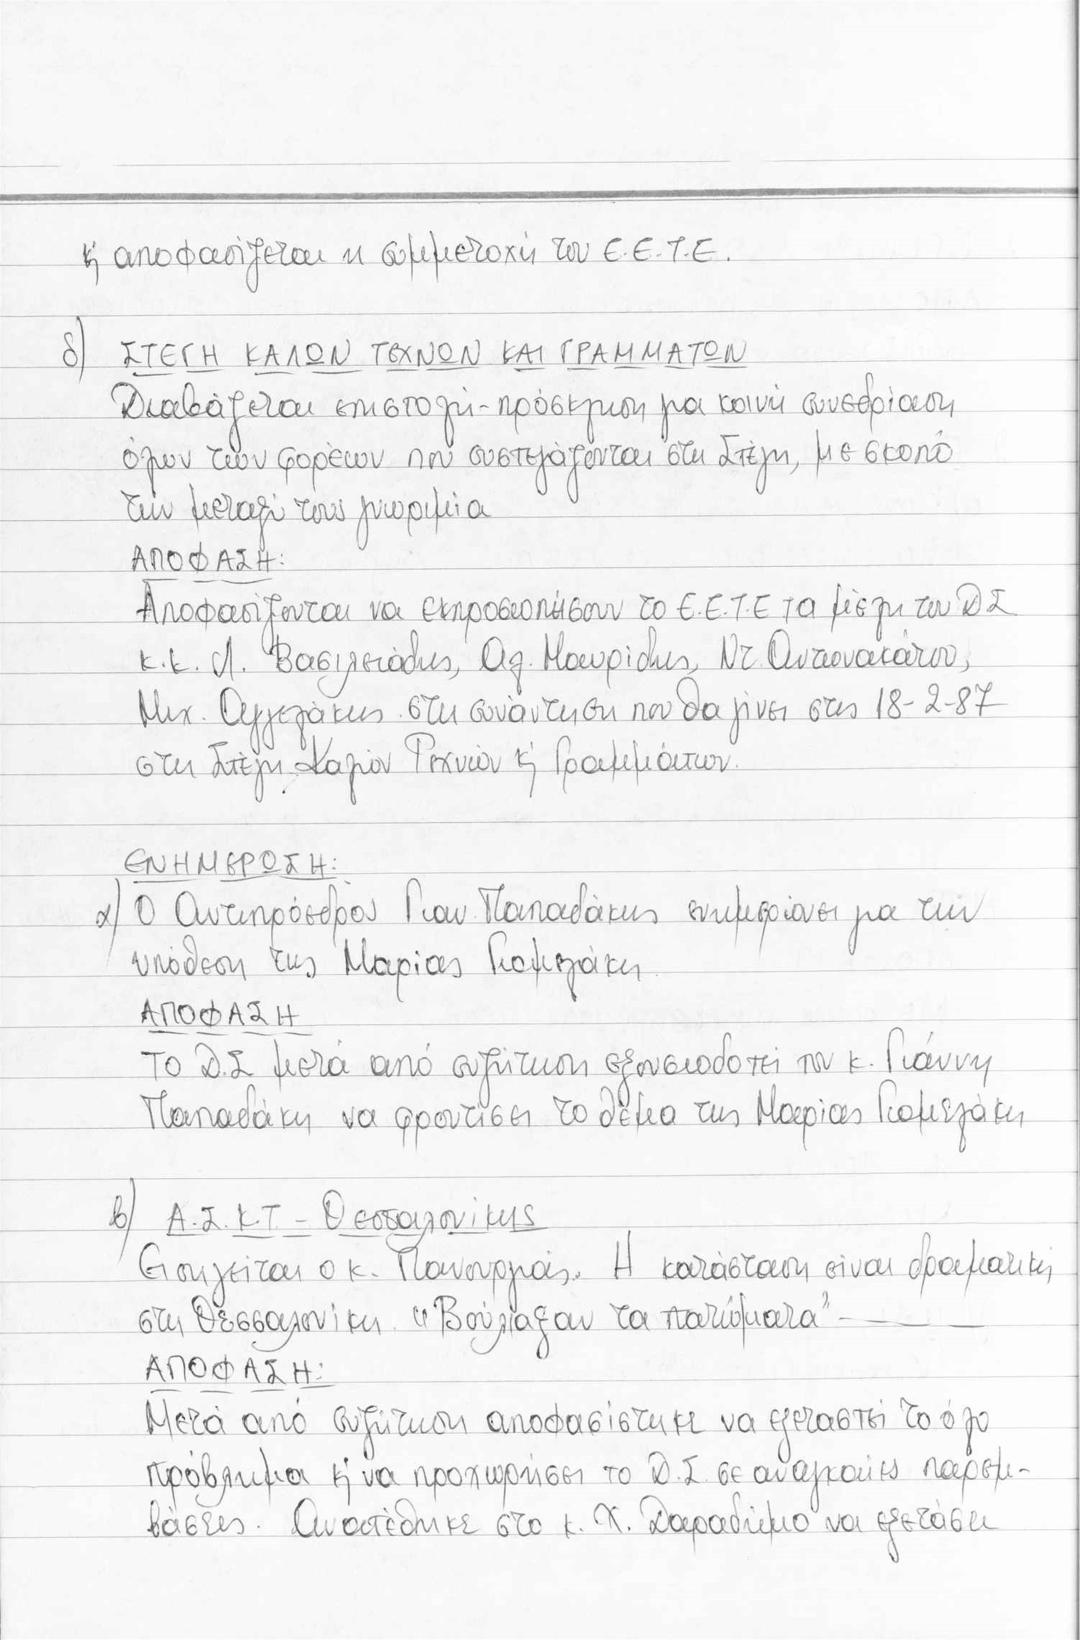 κ' αποφασίζεται η συμμετοχή του Ε.Ε.Τ.Ε.
δ) ΣΤΕΓΗ ΚΑΛΩΝ ΤΕΧΝΩΝ ΚΑΙ ΓΡΑΜΜΑΤΩΝ
Διαβάζεται επιστολή-πρόσκληση για κοινή συνεδρίαση
όλων των φορέων που συστεγάζονται στη Στέγη, με σκοπό
την μεταξύ τους γνωριμία
ΑΠΟΦΑΣΗ:
Αποφασίζονται να εκπροσωπήσουν το Ε.Ε.Τ.Ε τα μέλη του Δ.Σ
κ.κ. Λ. Βασιλειάδης, Αλ. Μαυρίδης, Ντ. Αντωνακάτου,
Μιχ. Αγγελάκης στη συνάντηση που θα γίνει στις 18-2-87
στη Στέγη Καλών Τεχνών κ' Γραμμάτων.
ΕΝΗΜΕΡΩΣΗ:
α) Ο Αντιπρόεδρος Γιαν. Παπαδάκης ενημερώνει για την
υπόθεση της Μαρίας Γιαμελάκη
ΑΠΟΦΑΣΗ
Το Δ.Σ μετά από συζήτηση εξουσιοδοτεί τον κ. Γιάννη
Παπαδάκη να φροντίσει το θέμα της Μαρίας Γιαμελάκη
β) Α.Σ.Κ.Τ - Θεσσαλονίκης
Εισηγείται ο κ. Πανουργιάς. Η κατάσταση είναι δραματική
στη Θεσσαλονίκη. "Βούλιαξαν τα πατώματα"
ΑΠΟΦΑΣΗ:
Μετά από συζήτηση αποφασίστηκε να εξεταστεί το όλο
πρόβλημα κ' να προχωρήσει το Δ.Σ σε αναγκαίες παρεμ-
βάσεις. Ανατέθηκε στο κ. Χ. Δαραδήμο να εξετάσει